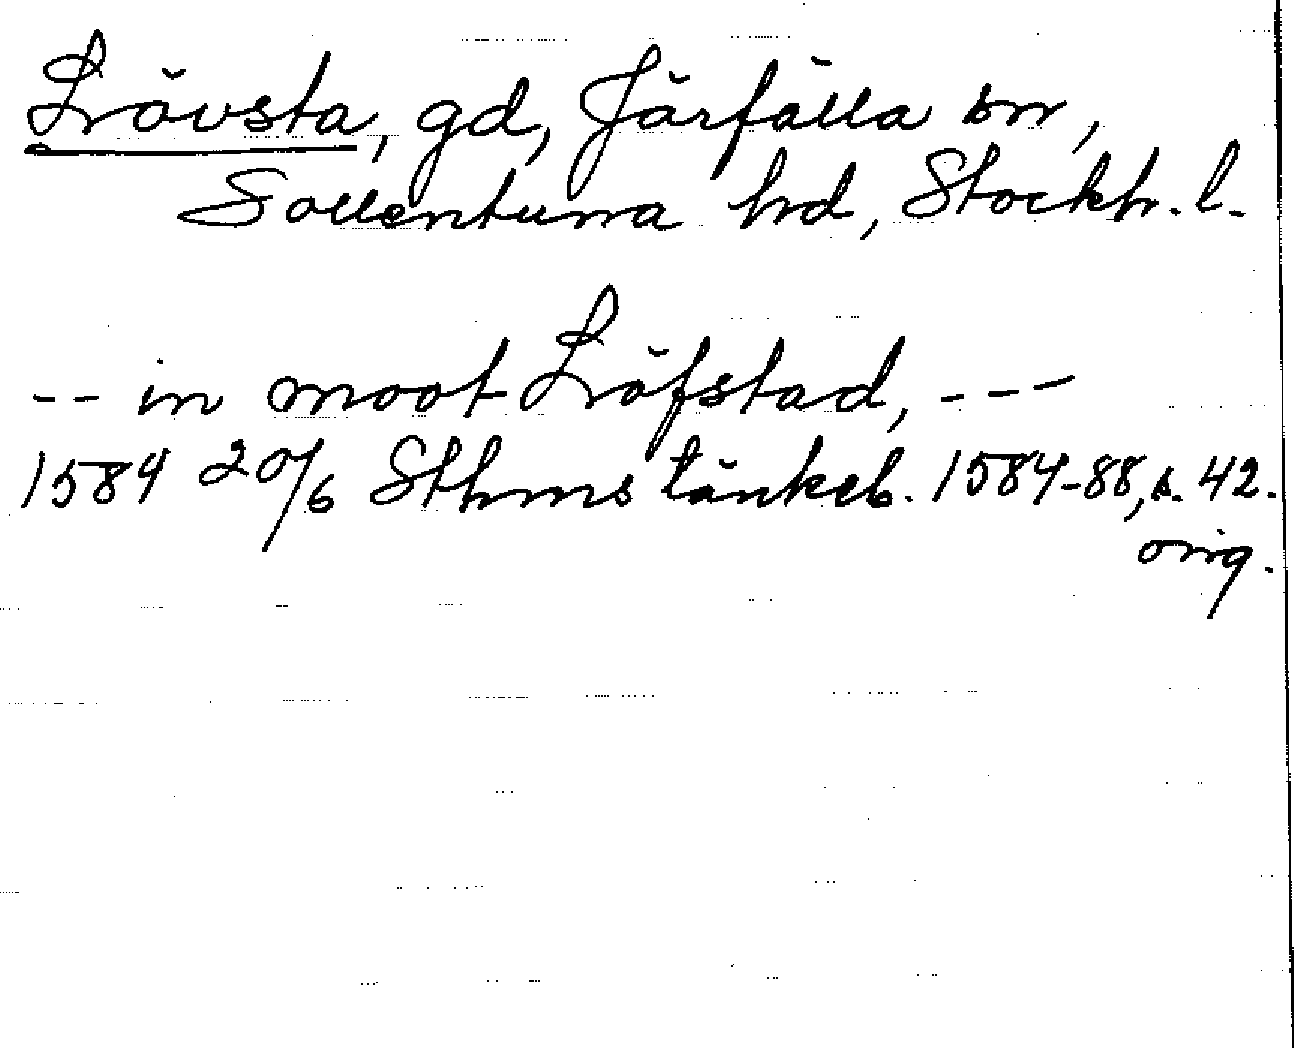 Lövsta, gd, Järfälla sn,
Sollentuna hd, Stockh. l.
-- in moot Löfstad, ---
1584 20/6 Sthms tänkeb. 1584-88, s. 42.
orig.